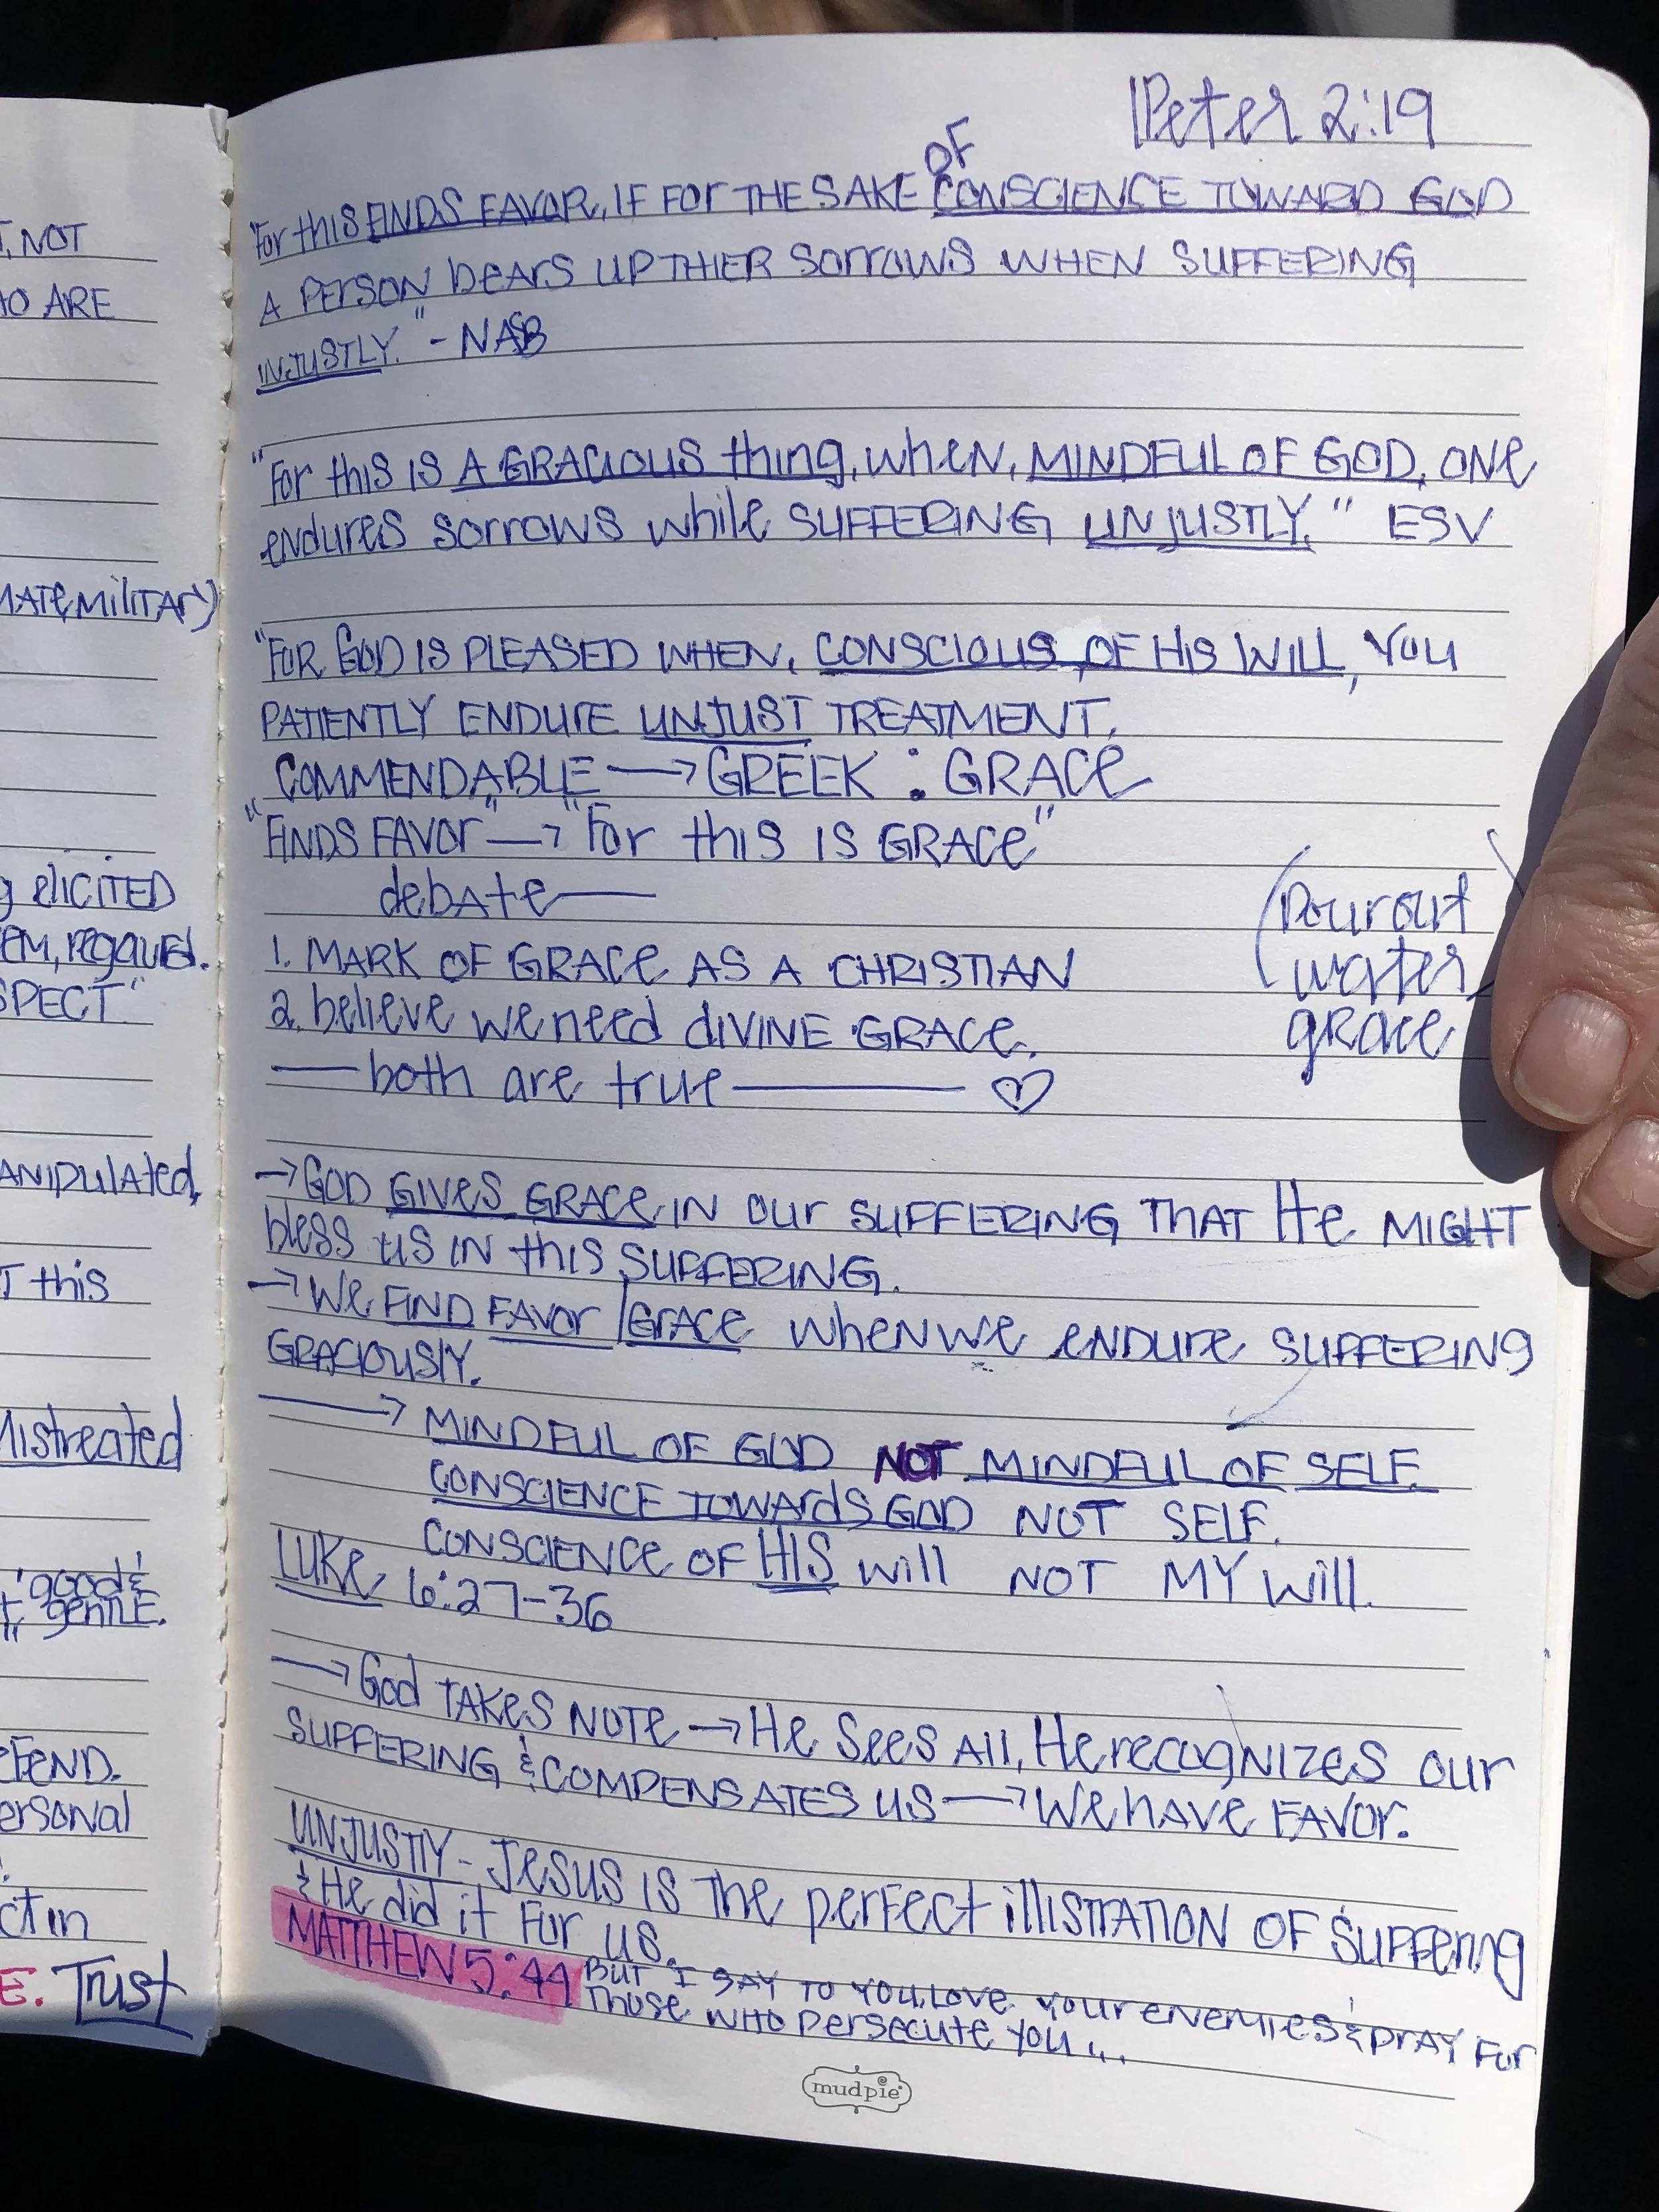 T, NOT
HO ARE
MATE MILITARY)
g ELICITED
EM, regaurd.
SPECT"
ANIPULATED,
T this
Mistreated
"good &
gentle.
EFEND.
ersonal
ct in
E. Trust
1 Peter 2:19
OF
"For this FINDS FAVOR, IF FOR THE SAKE CONSCIENCE TOWARD GOD
A PERSON bears UP THIER SORROWS WHEN SUFFERING
INJUSTLY." - NASB
"For this is A GRACIOUS thing, when, MINDFUL OF GOD, ONE
endures sorrows while SUFFERING UNJUSTLY." ESV
"FOR GOD IS PLEASED WHEN, CONSCIOUS OF HIS WILL, YOU
PATIENTLY ENDURE UNJUST TREATMENT.
COMMENDABLE → GREEK : GRACE
"FINDS FAVOR" → "For this IS GRACE"
debate —
1. MARK OF GRACE AS A CHRISTIAN
2. believe we need diVINE GRACE.
— both are true — ♡
(Pour out
water)
grace
→ GOD GIVES GRACE, IN OUR SUFFERING THAT He MIGHT
bless us IN this SUFFERING.
→ We FIND FAVOR / GRACE when we ENDURE SUFFERING
GRACIOUSLY.
→ MINDFUL OF GOD NOT MINDFUL OF SELF.
CONSCIENCE TOWARDS GOD NOT SELF.
CONSCIENCE OF HIS will NOT MY will.
LUKE 6:27-36
→ God TAKES NOTE → He Sees All, He recognizes our
SUFFERING & COMPENSATES US → We have FAVOR.
UNJUSTLY - Jesus is the perfect illistration of Suffering
& He did it For us.
MATTHEW 5:44 But I SAY TO YOU, LOVE your enemies & pray For
Those WHO persecute you...
mudpie